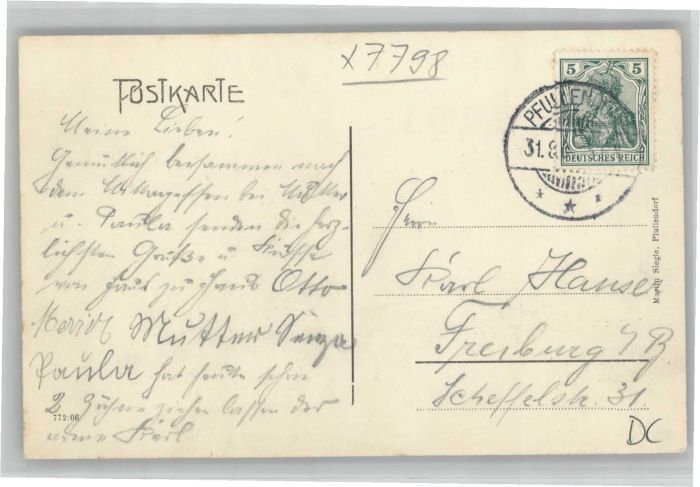 x7798
POSTKARTE
5 5
DEUTSCHES REICH
PFULLENDORF
31.8
Meine Lieben!
Gemütlich beisammen nach
dem Mittagessen bei Mutter
u. Paula senden die herz-
lichsten Grüße u. Küsse
von Haus zu Haus Otto
Mutter
Paula hat heute schon
2 Zähne ziehen lassen der
arme Karl
772:06
Herrn
Karl Hauser
Freiburg i/B
Scheffelstr. 31.
Martin Siegle, Pfullendorf
DC